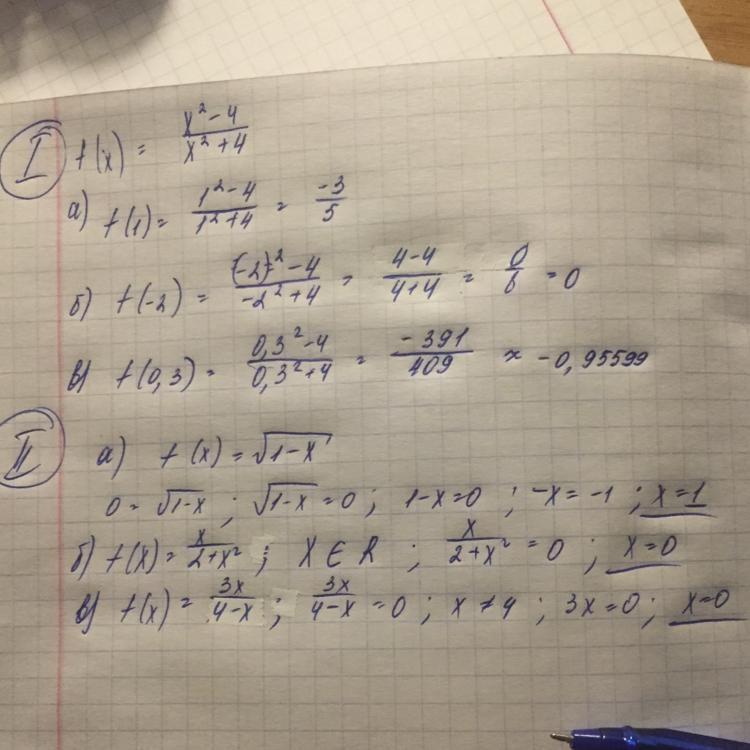 I f(x) = (x² - 4)/(x² + 4)
а) f(1) = (1² - 4)/(1² + 4) = -3/5
б) f(-2) = ((-2)² - 4)/(-2² + 4) = (4 - 4)/(4 + 4) = 0/6 = 0
в) f(0,3) = (0,3² - 4)/(0,3² + 4) = -391/409 ≈ -0,95599
II а) f(x) = √(1-x)
0 = √(1-x) ; √(1-x) = 0 ; 1-x=0 ; -x = -1 ; x=1
б) f(x) = x/(2+x²) ; x ∈ R ; x/(2+x²) = 0 ; x=0
в) f(x) = 3x/(4-x) ; 3x/(4-x) = 0 ; x ≠ 4 ; 3x=0 ; x=0